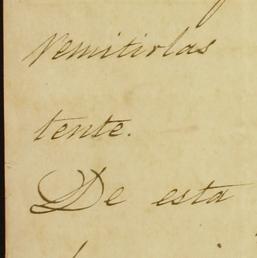 remitirlas
tente.
De esta